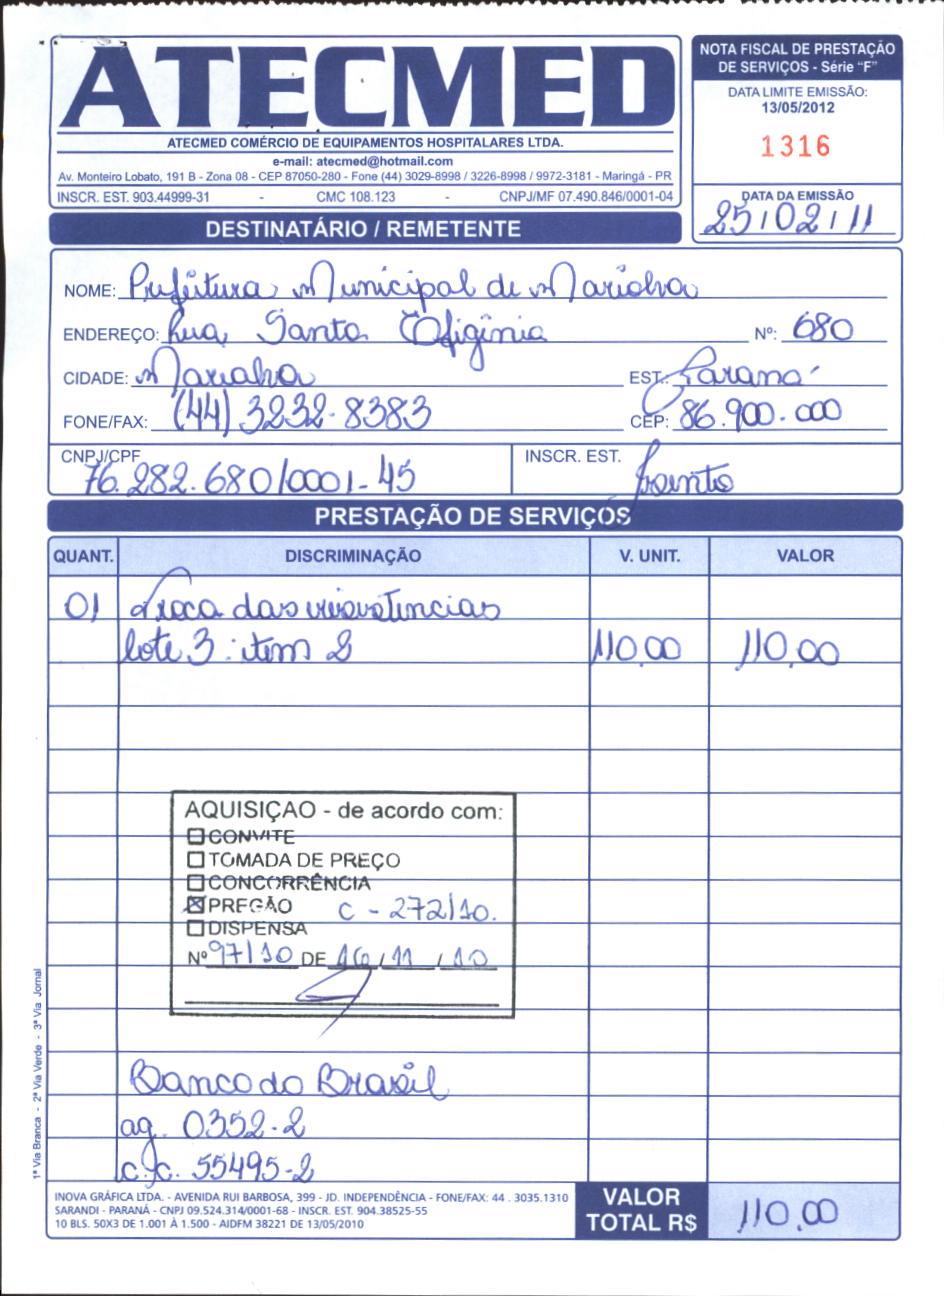 ATECMED
ATECMED COMÉRCIO DE EQUIPAMENTOS HOSPITALARES LTDA.
e-mail: atecmed@hotmail.com
Av. Monteiro Lobato, 191 B - Zona 08 - CEP 87050-280 - Fone (44) 3029-8998 / 3226-8998 / 9972-3181 - Maringá - PR
INSCR. EST. 903.44999-31 - CMC 108.123 - CNPJ/MF 07.490.846/0001-04
NOTA FISCAL DE PRESTAÇÃO
DE SERVIÇOS - Série "F"
DATA LIMITE EMISSÃO:
13/05/2012
1316
DATA DA EMISSÃO
25/02/11
DESTINATÁRIO / REMETENTE
NOME: Prefeitura Municipal de Marialva
ENDEREÇO: Rua Santa Efigênia Nº: 680
CIDADE: Marialva EST.: Paraná
FONE/FAX: (44) 3232-8383 CEP: 86.900-000
CNPJ/CPF 76.282.680/0001-45 INSCR. EST. Isento
PRESTAÇÃO DE SERVIÇOS
QUANT. DISCRIMINAÇÃO V. UNIT. VALOR
01 Troca das resistências
lote 3 : item 2 110,00 110,00
AQUISIÇAO - de acordo com:
☐ CONVITE
☐ TOMADA DE PREÇO
☐ CONCORRÊNCIA
☒ PREGÃO C - 272/10.
☐ DISPENSA
Nº 97/10 DE 16/11/10
Banco do Brasil
ag. 0352-2
c.c. 55495-2
1ª Via Branca - 2ª Via Verde - 3ª Via Jornal
INOVA GRÁFICA LTDA. - AVENIDA RUI BARBOSA, 399 - JD. INDEPENDÊNCIA - FONE/FAX: 44 . 3035.1310
SARANDI - PARANÁ - CNPJ 09.524.314/0001-68 - INSCR. EST. 904.38525-55
10 BLS. 50X3 DE 1.001 À 1.500 - AIDFM 38221 DE 13/05/2010
VALOR
TOTAL R$ 110,00